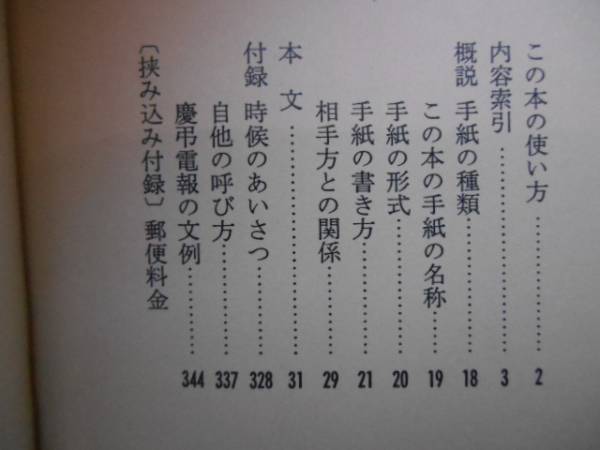 この本の使い方……………… 2
内容索引……………………… 3
概説 手紙の種類……………… 18
この本の手紙の名称…… 19
手紙の形式……………… 20
手紙の書き方…………… 21
相手方との関係………… 29
本文………………………… 31
付録 時候のあいさつ………… 328
自他の呼び方…………… 337
慶弔電報の文例………… 344
〔挟み込み付録〕郵便料金